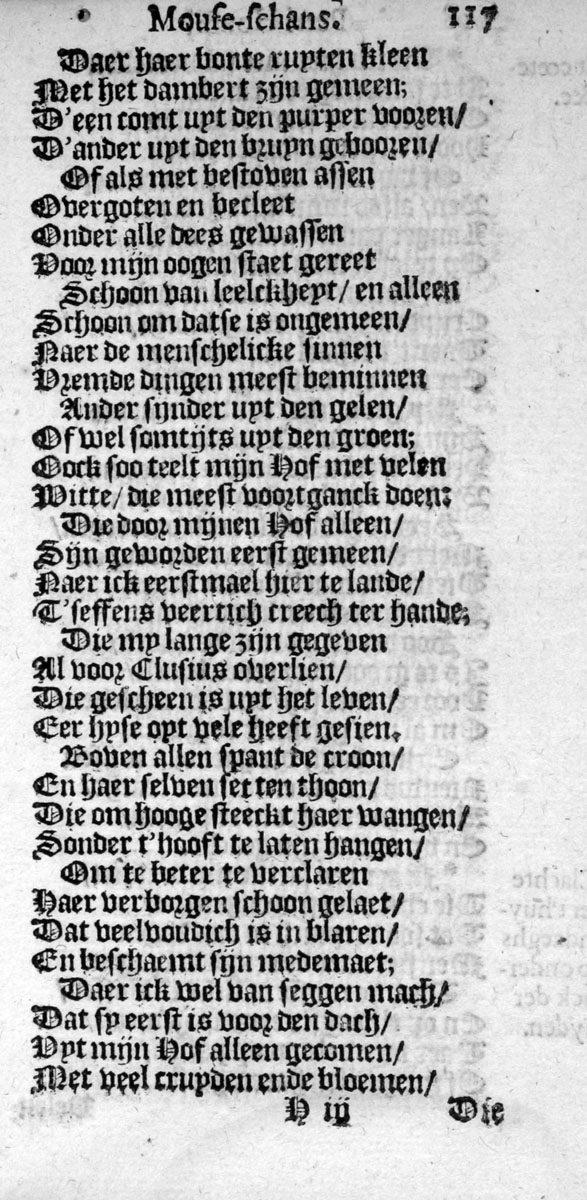 Mouse-schans. 117
Daer haer bonte rupten kleen
Met het dambert zijn gemeen;
D'een comt upt den purper vooren/
D'ander upt den bruyn gebooren/
Of als met bestoven assen
Overgoten en becleet
Onder alle dees gewassen
Voor mijn oogen staet gereet
Schoon van leelckheyt/ en alleen
Schoon om datse is ongemeen/
Naer de menschelicke sinnen
Vremde dingen meest beminnen
Ander sijnder uyt den gelen/
Of wel somtijts uyt den groen;
Oock soo teelt mijn Hof met velen
Witte/ die meest voortganck doen:
Die door mijnen Hof alleen/
Sijn geworden eerst gemeen/
Naer ick eerstmael hier te lande/
T'seffens veertich creech ter hande;
Die my lange zijn gegeven
Al voor Clusius overlien/
Die gescheen is uyt het leven/
Eer hyse oyt vele heeft gesien.
Boven allen spant de croon/
En haer selven set ten thoon/
Die om hooge steeckt haer wangen/
Sonder t'hooft te laten hangen/
Om te beter te verclaren
Haer verborgen schoon gelaet/
Dat veelvoudich is in blaren/
En beschaemt sijn medemaet;
Daer ick wel van seggen mach/
Dat sy eerst is voor den dach/
Uyt mijn Hof alleen gecomen/
Met veel cruyden ende bloemen/
H iij Die